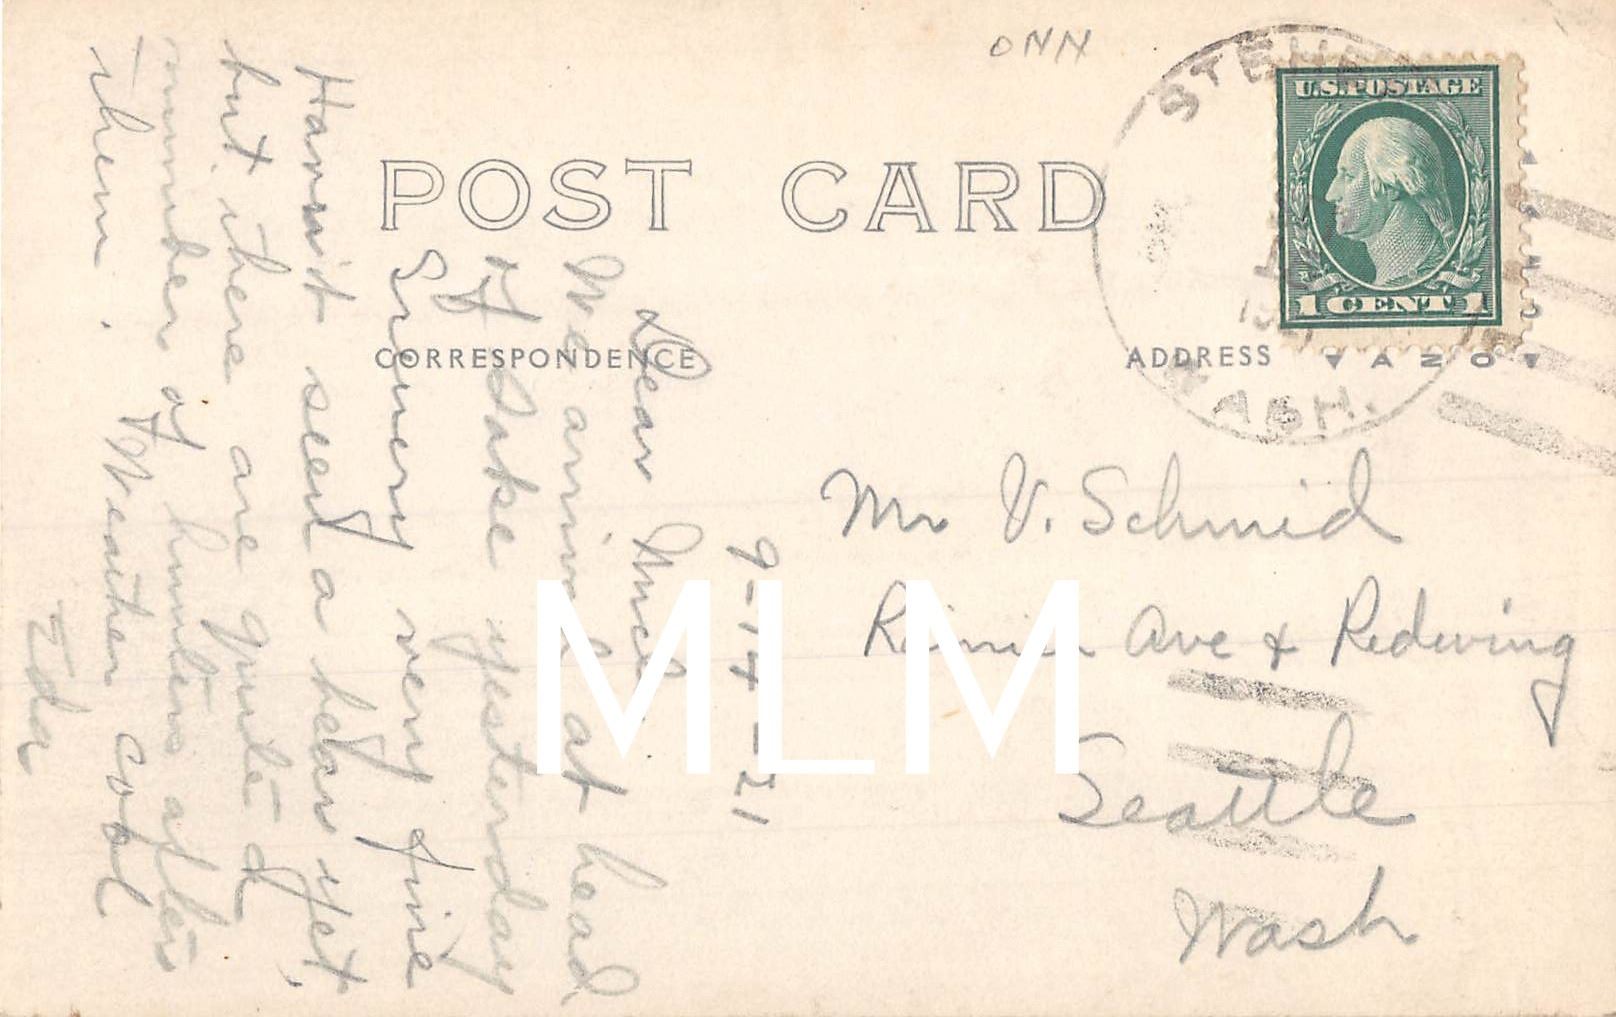 ONN
STEHE
WASH.
U.S. POSTAGE
1 CENT 1
POST CARD
CORRESPONDENCE
ADDRESS
AZO
9-14-21
Dear Uncle
We arrived at head
of Lake yesterday
Scenery very fine
Havn't seen a bear yet.
but there are quite a
number of hunters after
them. Weather cool
Eda
Mr V. Schmid
Rainier Ave & Redwing
Seattle
Wash
MLM